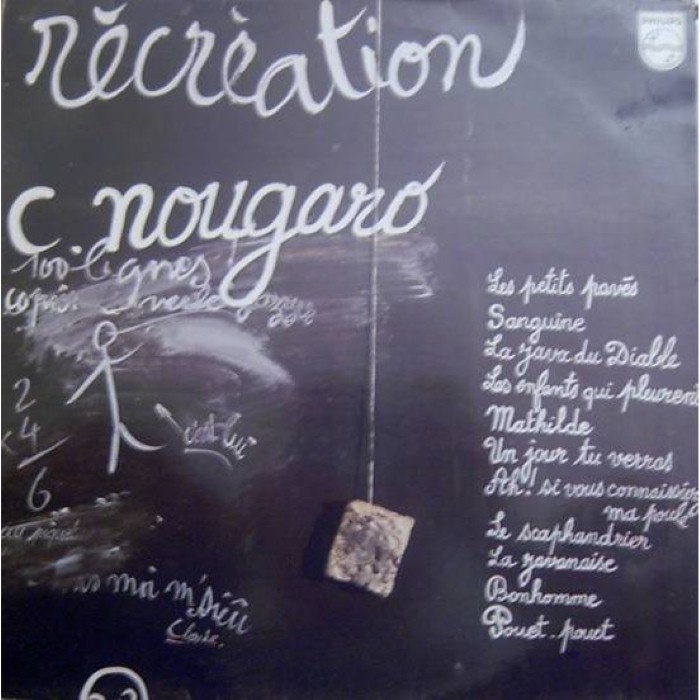 récréation
PHILIPS
c nougaro
100 lignes
copier
2
x4
6
c'est lui
moi m'sieu
Claude.
Les petits pavés
Sanguine
La java du Diable
Les enfants qui pleuren
Mathilde
Un jour tu verras
Ah! si vous connaissiez
ma poule
Le scaphandrier
La javanaise
Bonhomme
Pouet-pouet